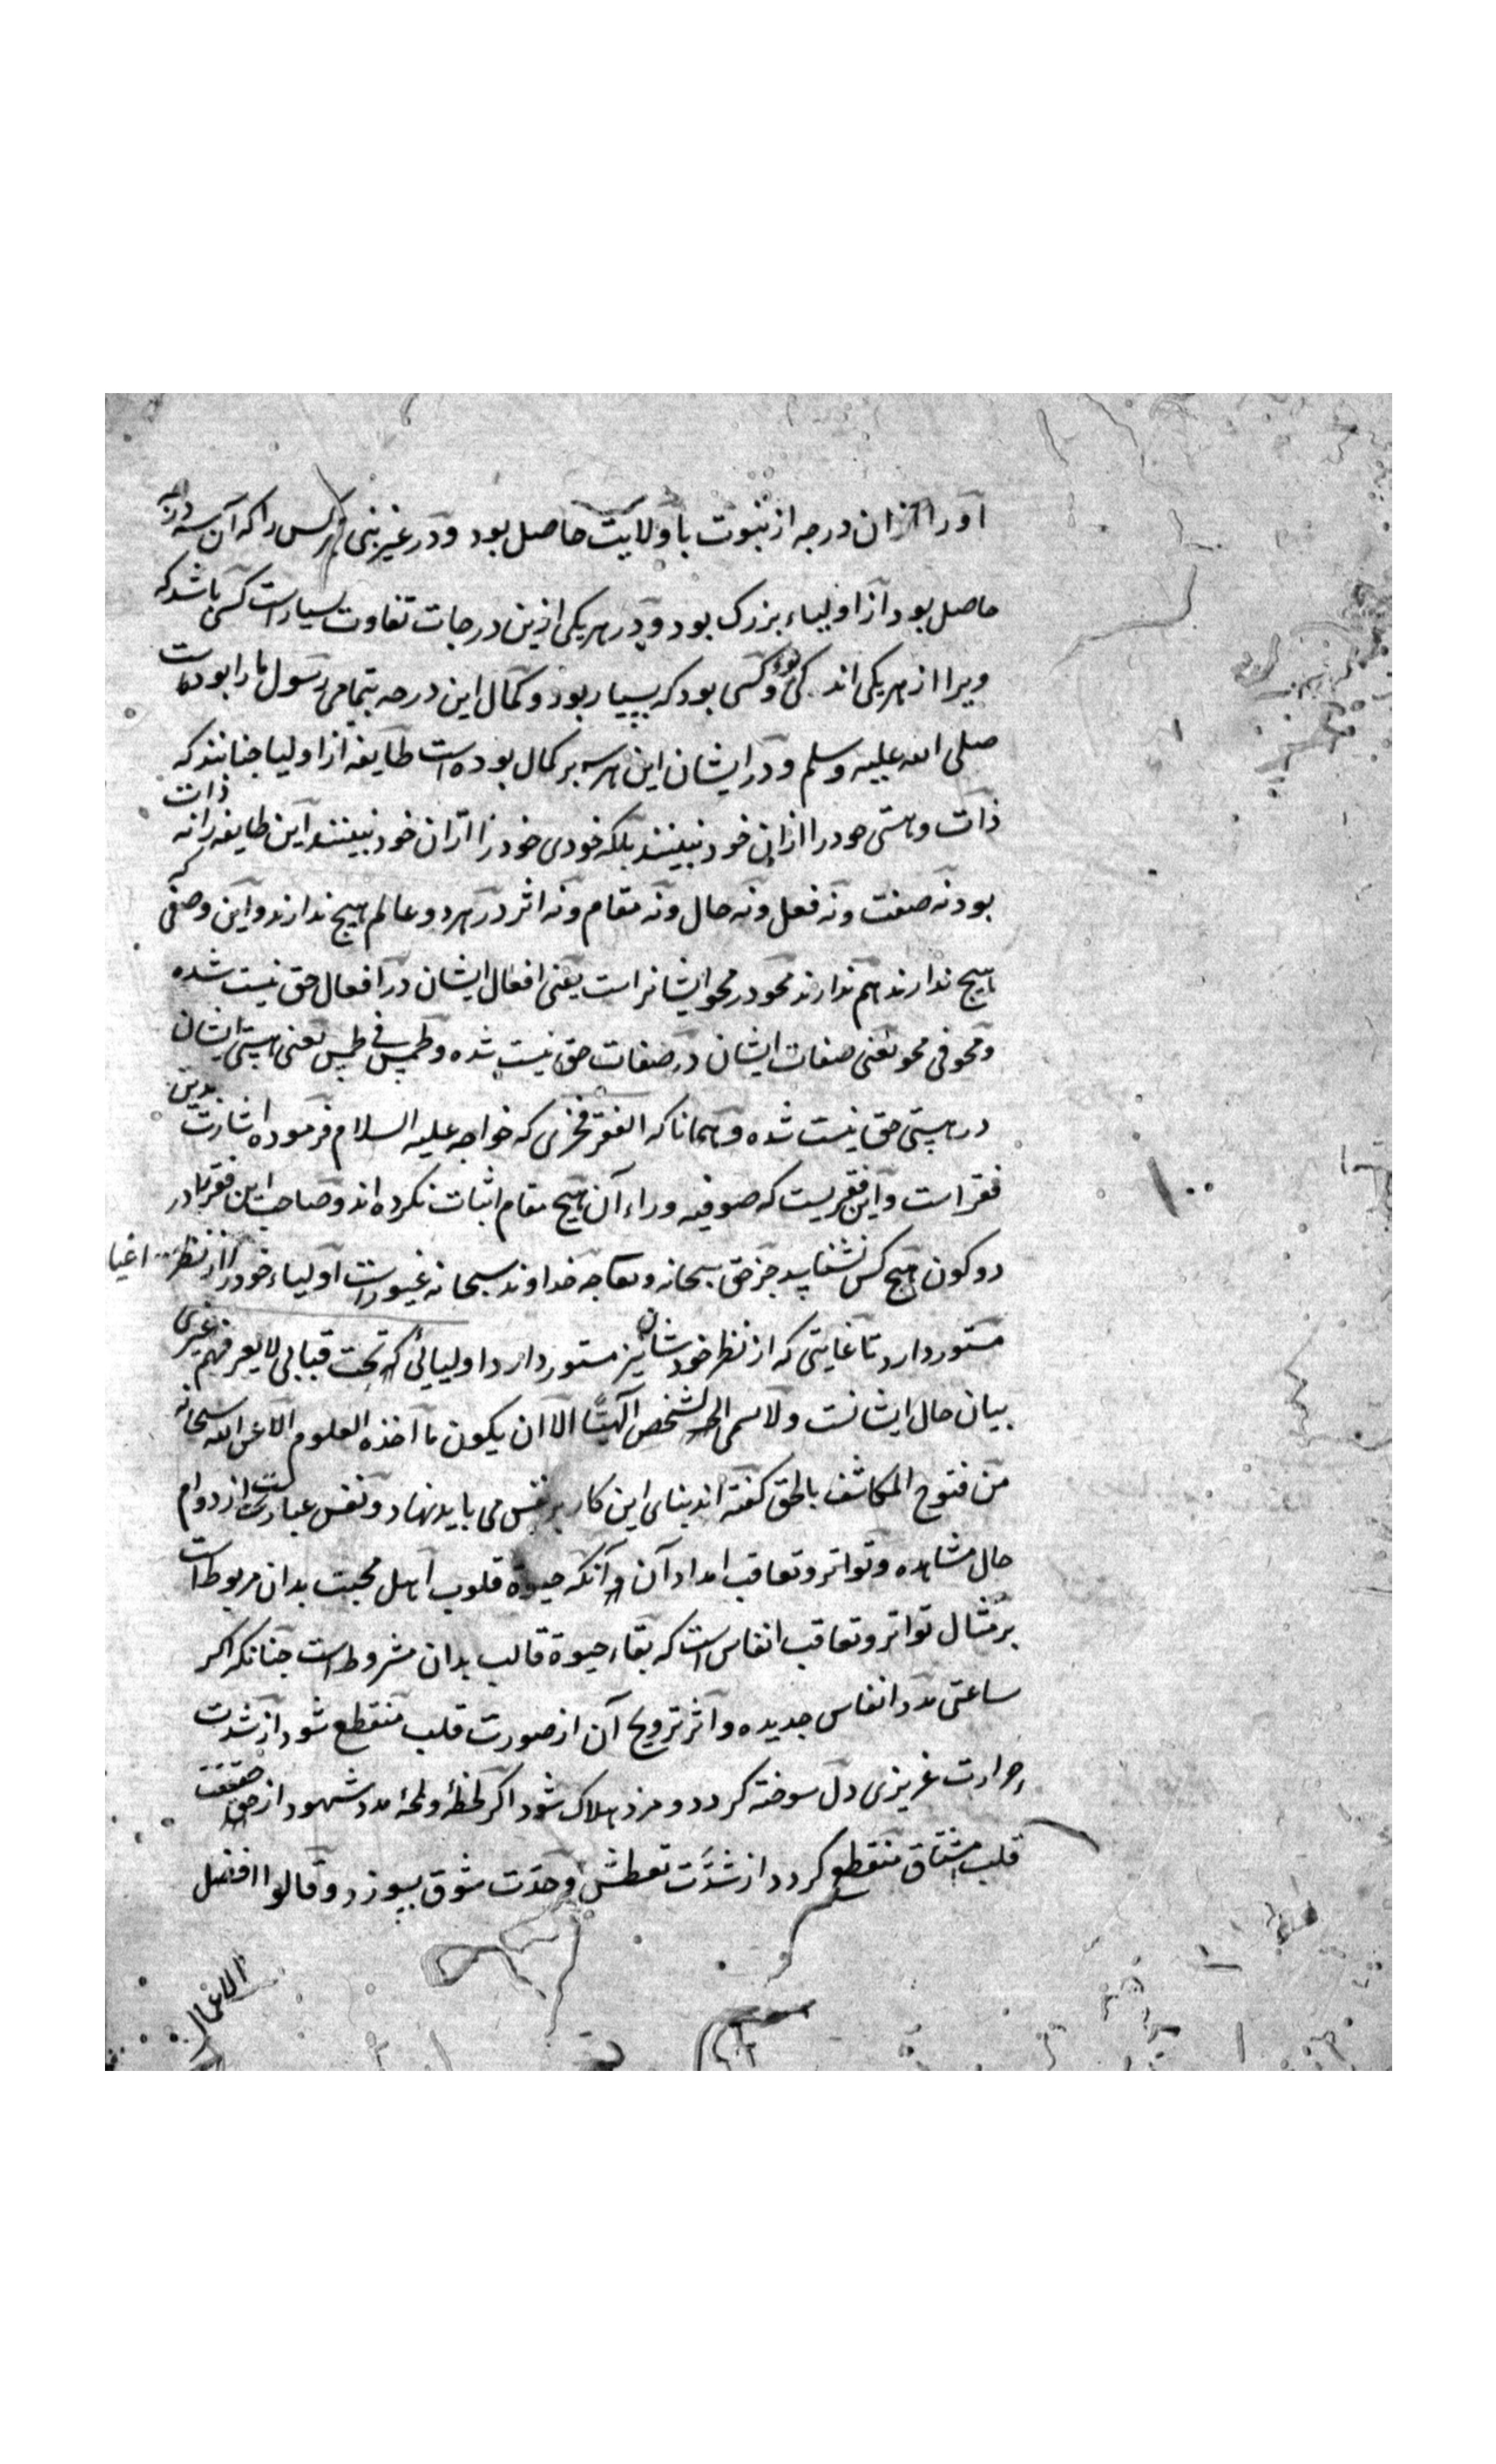 او را ازان درجه از نبوت یا ولایت حاصل بود و در غیر نبی هر کس را که آن سه درجه
حاصل بود از اولیاء بزرک بود و در هر یکی ازین درجات تفاوت بسیار است کسی باشد که
ویرا از هر یکی اندکی بود و کسی بود که بسیار بود و کمال این درجه بتمامی رسول ما را بوده است
صلی الله علیه وسلم و در ایشان این هر سه بر کمال بوده است طایفه از اولیا جنانند که
ذات و هستی خود را ازان خود نبینند بلکه خودی خود را ازان خود نبینند این طایفه را نه ذات
بود نه صفت و نه فعل و نه حال و نه مقام و نه اثر در هر دو عالم هیچ ندارند و این وصفی که
هیچ ندارند هم ندارند محو در محو ایشانراست یعنی افعال ایشان در افعال حق نیست شده
و محو فی محو یعنی صفات ایشان در صفات حق نیست شده و طمس فی طمس یعنی هستی ایشان
در هستی حق نیست شده و همانا که الفقر فخری که خواجه علیه السلام فرموده اشارت بدین
فقر است و این فقریست که صوفیه وراء آن هیچ مقام اثبات نکرده اند و صاحب این فقر را در
دو کون هیچ کس نشناسد جز حق سبحانه و تعالی جه خداوند سبحانه غیور است اولیاء خود را از نظر اغیا
مستور دارد تا غایتی که از نظر خودشان نیز مستور دارد اولیائی تحت قبابی لا یعرفهم غیری
بیان حال ایشانست ولا یسمی الشخص الهیّا الا ان یکون ما اخذه العلوم الا عن الله سبحانه
من فتوح المکاشف بالحق کفته اند بنای این کار بر نفس می باید نهاد و نفس عبارتست از دوام
حال مشاهده و تواتر و تعاقب امداد آن و آنکه حیوة قلوب اهل محبت بدان مربوط است
بر مثال تواتر و تعاقب انفاس است که بقاء حیوة قالب بدان مشروط است جنانکه اکر
ساعتی مدد انفاس جدیده و اثر ترویح آن از صورت قلب منقطع شود از شدت
حرارت غریزی دل سوخته کردد و مرد هلاک شود اکر لحظهٔ و لمحهٔ مدد شهود از حقیقت
قلب مشتاق منقطع کردد از شدّت تعطش و حدّت شوق بسوزد و قالوا افضل
الاعمال